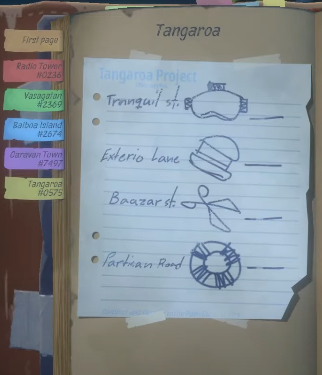 Tangaroa
First page
Radio Tower
#0236
Vasagatan
#2369
Balboa Island
#2674
Caravan Town
#7497
Tangaroa
#0575
Tangaroa Project
Tranquil st.
Exterio Lane
Baazar st.
Partisan Road